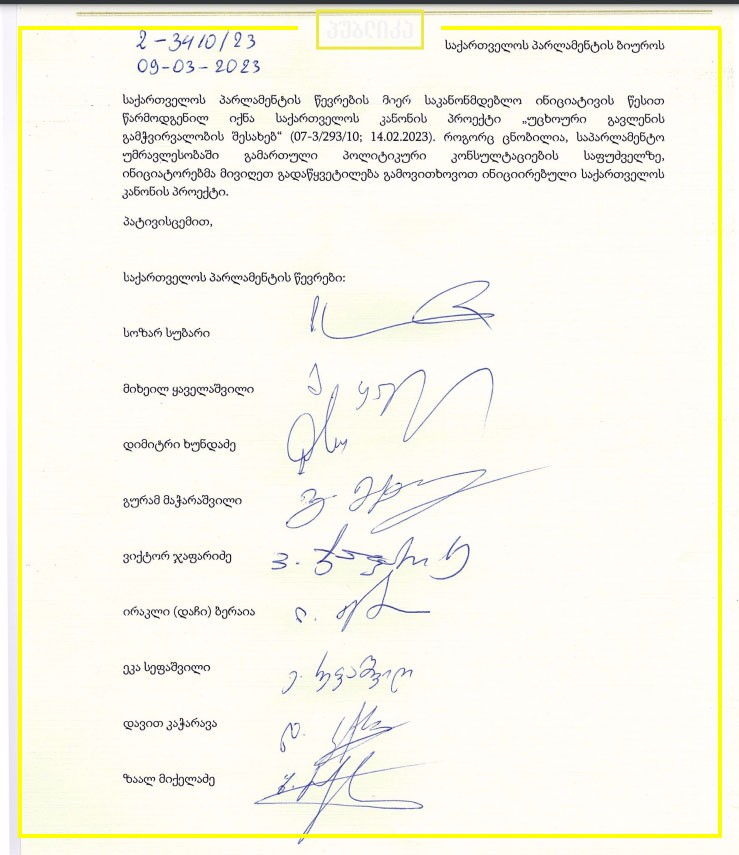 პუბლიკა
2-3410/23
09-03-2023
საქართველოს პარლამენტის ბიუროს
საქართველოს პარლამენტის წევრების მიერ საკანონმდებლო ინიციატივის წესით
წარმოდგენილ იქნა საქართველოს კანონის პროექტი „უცხოური გავლენის
გამჭვირვალობის შესახებ“ (07-3/293/10; 14.02.2023). როგორც ცნობილია, საპარლამენტო
უმრავლესობაში გამართული პოლიტიკური კონსულტაციების საფუძველზე,
ინიციატორებმა მივიღეთ გადაწყვეტილება გამოვითხოვოთ ინიციირებული საქართველოს
კანონის პროექტი.
პატივისცემით,
საქართველოს პარლამენტის წევრები:
სოზარ სუბარი
მიხეილ ყაველაშვილი
დიმიტრი ხუნდაძე
გურამ მაჭარაშვილი
ვიქტორ ჯაფარიძე
ირაკლი (დაჩი) ბერაია
ეკა სეფაშვილი
ე. სეფაშვილი
დავით კაჭარავა
ზაალ მიქელაძე